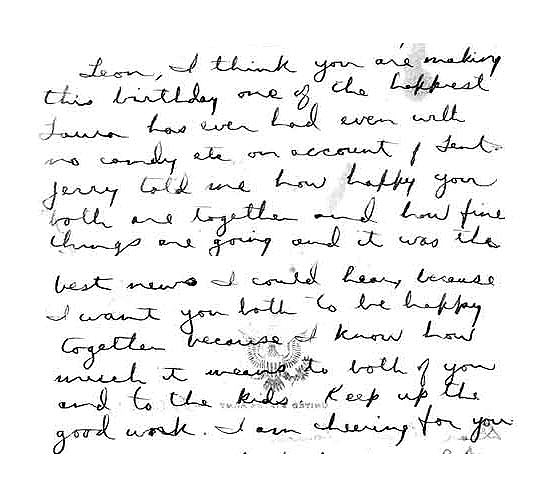 Leon, I think you are making
this birthday one of the happiest
Laura has ever had even with
no candy etc on account of Lent.
Jerry told me how happy you
both are together and how fine
things are going and it was the
best news I could hear, because
I want you both to be happy
together because I know how
much it means to both of you
and to the kids. Keep up the
good work. I am cheering for you